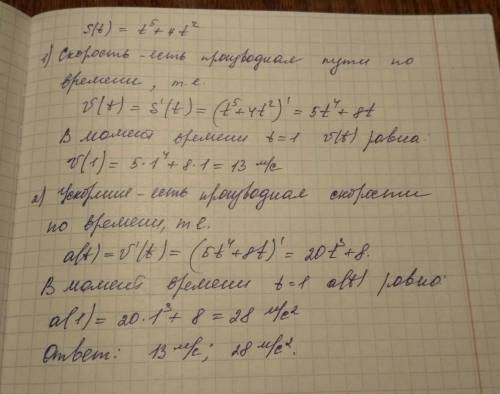 S(t) = t⁵ + 4t²
1) Скорость - есть производная пути по
времени, т.е.
v(t) = S'(t) = (t⁵+4t²)' = 5t⁴ + 8t
В момент времени t=1 v(t) равна:
v(1) = 5·1⁴ + 8·1 = 13 м/с
2) Ускорение - есть производная скорости
по времени, т.е.
a(t) = v'(t) = (5t⁴+8t)' = 20t³ + 8.
В момент времени t=1 a(t) равно:
a(1) = 20·1³ + 8 = 28 м/с²
Ответ: 13 м/с; 28 м/с².